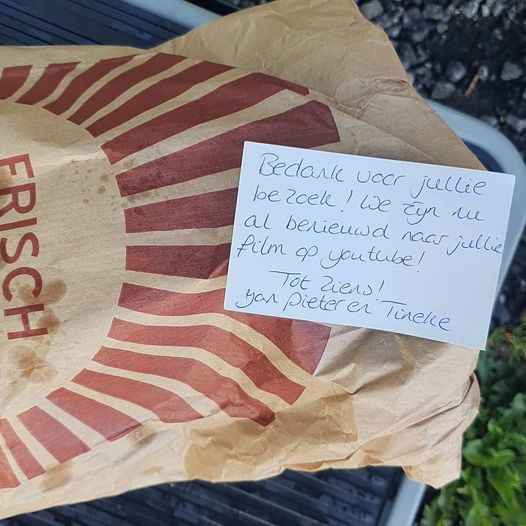 FRISCH
Bedank voor jullie
bezoek! We zijn nu
al benieuwd naar jullie
film op youtube!
Tot ziens!
Jan Pieter en Tineke